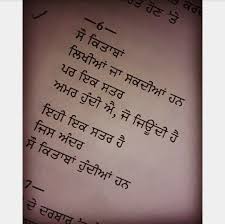 —6—
ਸੌ ਕਿਤਾਬਾਂ
ਲਿਖੀਆਂ ਜਾ ਸਕਦੀਆਂ ਹਨ
ਪਰ ਇਕ ਸਤਰ
ਅਮਰ ਹੁੰਦੀ ਐ, ਜੋ ਜਿਉਂਦੀ ਹੈ
ਇਹੀ ਇਕ ਸਤਰ ਹੈ
ਜਿਸ ਅੰਦਰ
ਸੌ ਕਿਤਾਬਾਂ ਹੁੰਦੀਆਂ ਹਨ
7—
ਦੇ ਦਰਬਾਰ